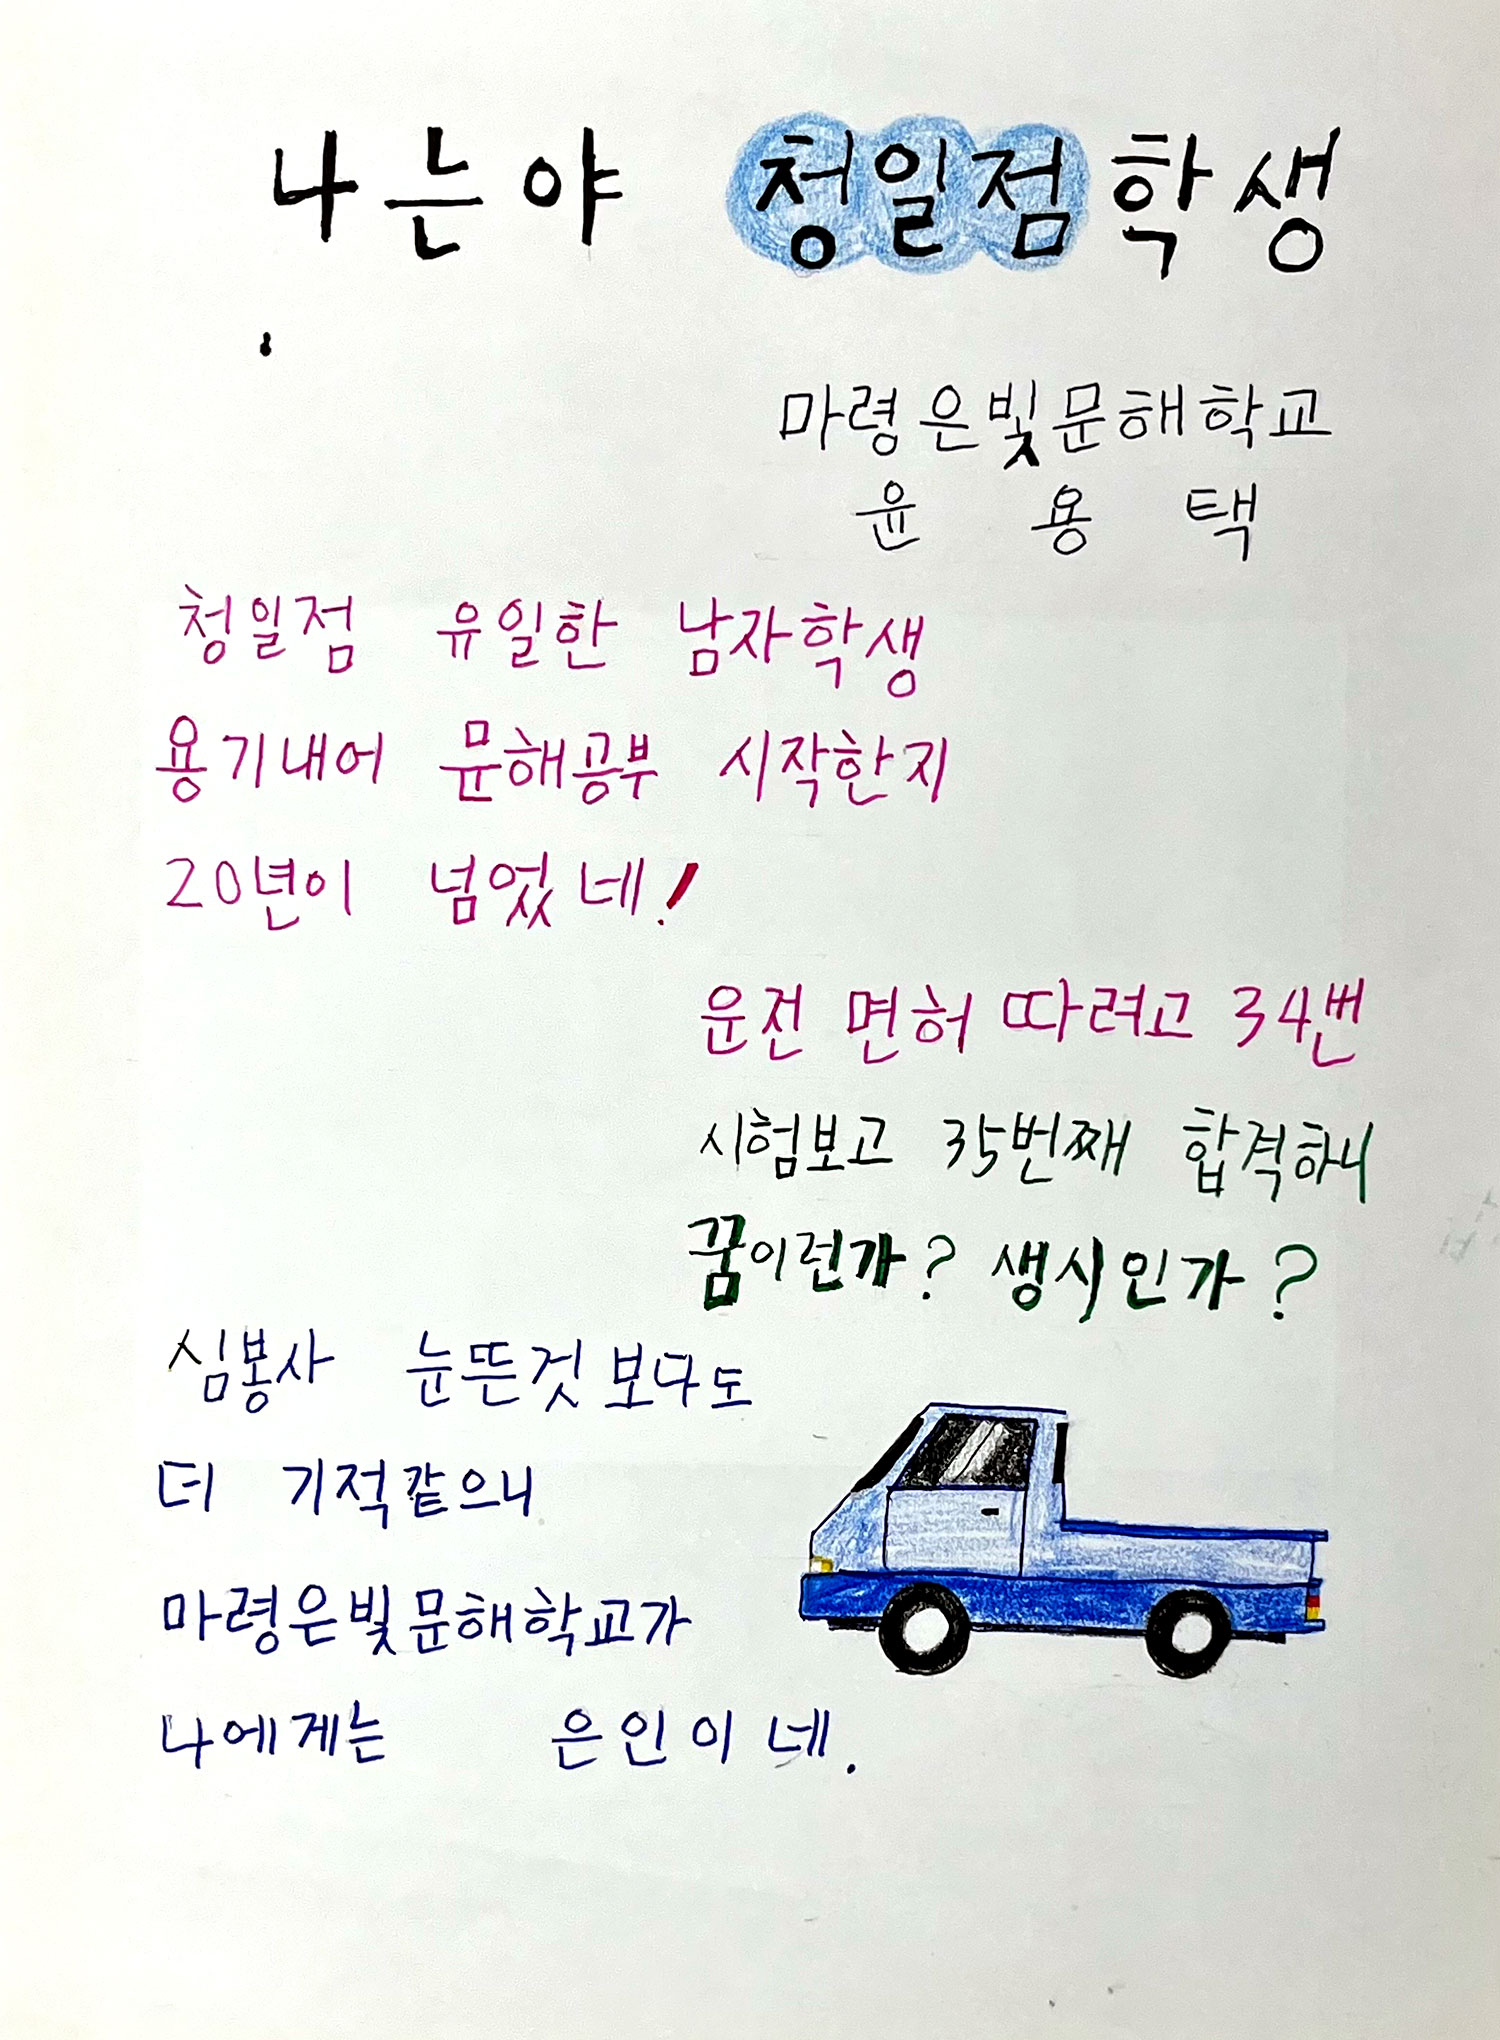 나는야 청일점학생
마령은빛문해학교
윤 용 택
청일점 유일한 남자학생
용기내어 문해공부 시작한지
20년이 넘었네!
운전 면허 따려고 34번
시험보고 35번째 합격하니
꿈이런가? 생시인가?
심봉사 눈뜬것 보다도
더 기적같으니
마령은빛문해학교가
나에게는 은인이네.